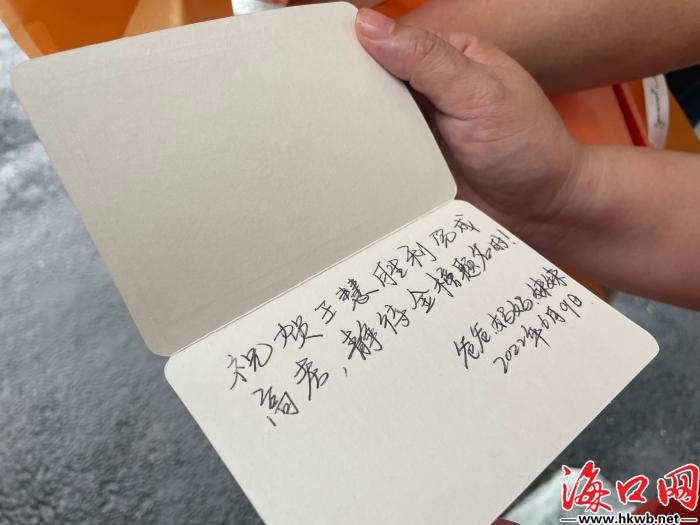 祝贺王慧胜利完成
高考，静待金榜题名时！
爸爸.妈妈.妹妹
2022年6月9日
海口网
www.hkwb.net